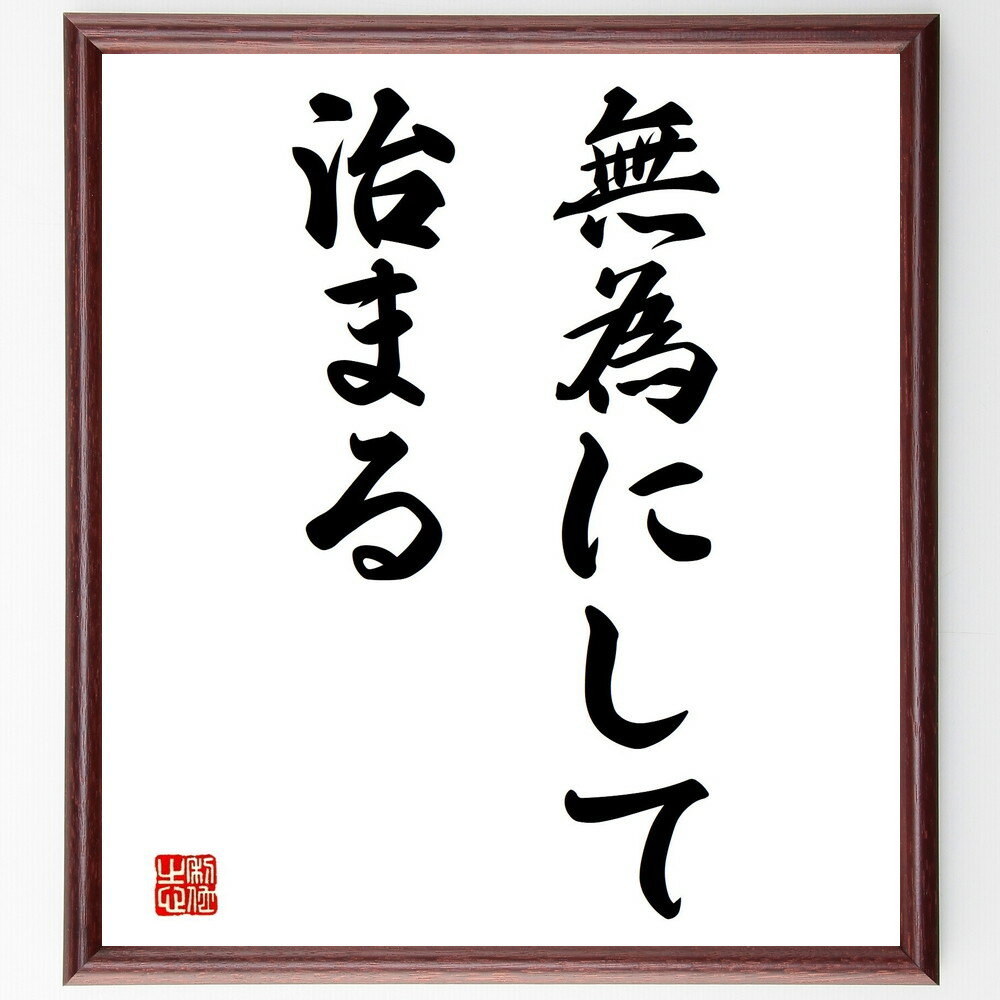 無為にして
治まる